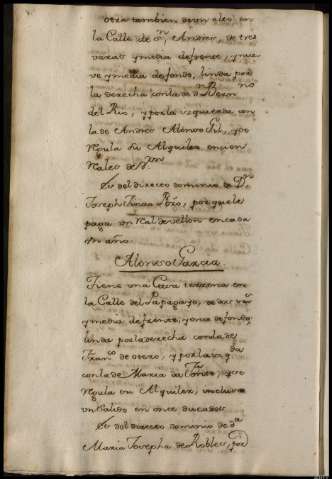 otra tambien de un alto en
la Calle de Sn. Andres, de tres
varas y media de frente, y nue
ve y media de fondo, linda por
la derecha con la de
del Rio, y por la izquierda con
la de Andres Alonso Gil, y se
regula su Alquiler en cien
Rales de Vn.
Es del directo dominio de Dn.
Joseph por que le
paga un Ral. de vellon en cada
un año.
Alonso Garcia
Tiene una Casa terrena en
la Calle del Papagayo, de diez vars.
y media de frente, y once de fondo,
linda por la derecha con la de
Franco. de otero, y por la izqda.
con la de Maria de Torres, y se
regula su Alquiler, inclusive
un Salido en once ducados
Es del directo dominio de Da.
Maria Josepha de Robles, por